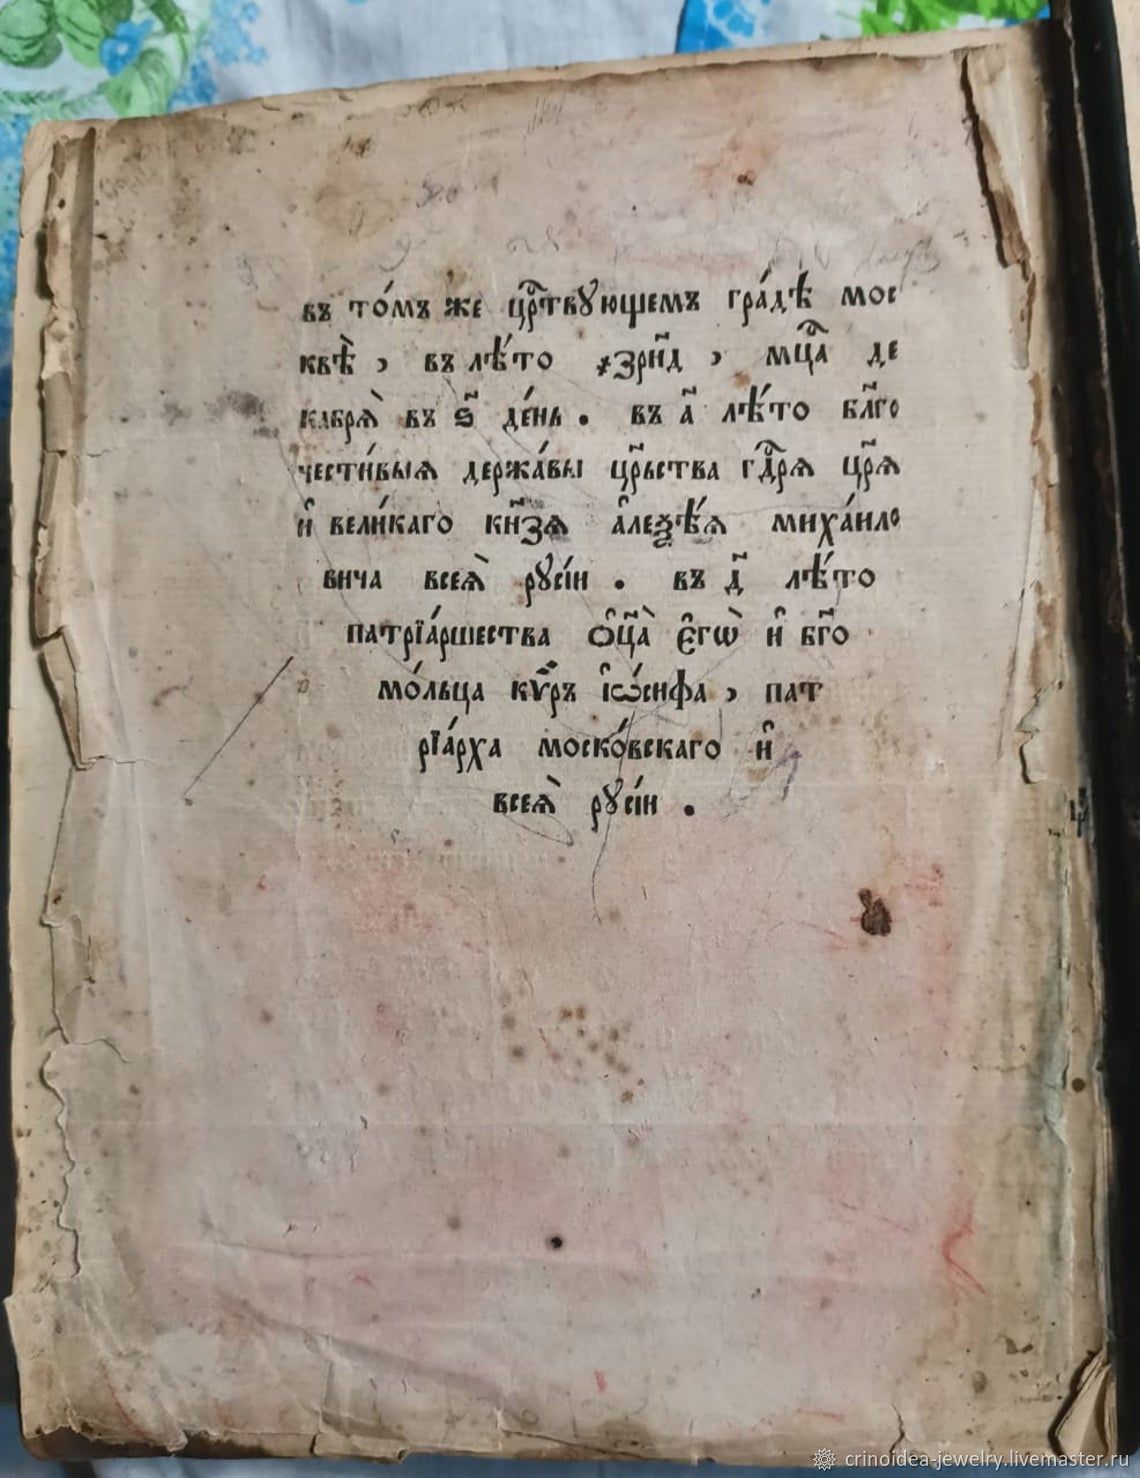 въ то́мъ же црⷭ҇твꙋющемъ гра́дѣ мос
квѣ̀, въ лѣ́то ҂зрн҃д, мцⷭ҇а де
кабрѧ̀ въ ѕ҃ де́нь. въ а҃ лѣ́то бл҃го
чести́выѧ держа́вы црⷭ҇ьства гдⷭ҇рѧ цр҃ѧ
и҆ вели́каго кнⷭ҇зѧ а҆леѯѣ́ѧ миха́ило
вича всеѧ̀ рꙋсі́и. въ д҃ лѣ́то
патрїа́ршества ѻ҆ц҃а̀ є҆гѡ̀ и҆ бг҃о
мо́льца кѷ́ръ і҆ѡ́сифа, пат
рїа́рха моско́вскаго и҆
всеѧ̀ рꙋсі́и.
crinoidea-jewelry.livemaster.ru